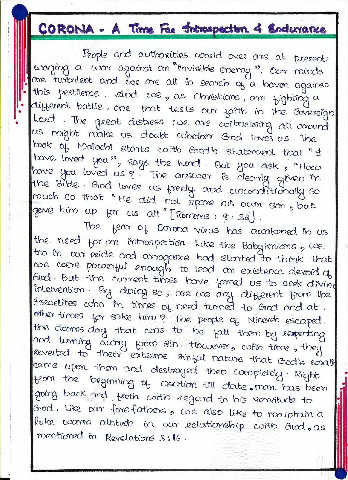 CORONA - A Time For Introspection & Endurance
People and authorities world over are at present
waging a war against an "Invisible enemy". Our minds
are turbulent and we are all in search of a haven against
this pestilence. And we, as Christians, are fighting a
different battle. One that tests our faith in the Sovereign
Lord. The great distress we are witnessing all around
us might make us doubt whether God loves us. The
book of Malachi starts with God's statement that "I
have loved you", says the Lord. But you ask, "How
have you loved us? The answer is clearly given in
the Bible. God loves us freely and unconditionally so
much so that "He did not spare his own son, but
gave him up for us all" [Romans : 8 : 32].
The fear of Corona virus has awakened in us
the need for an Introspection. Like the Babylonians, we
too in our pride and arrogance had started to think that
we were powerful enough to lead an existence devoid of
God. But the current times have forced us to seek divine
intervention. By doing so, are we any different from the
Israelites who in times of need turned to God and at
other times forsake him? The people of Nineveh escaped
the dooms day that was to befall them by repenting
and turning away from sin. However, with time, they
reverted to their extreme sinful nature that God's wrath
came upon them and destroyed them completely. Right
from the beginning of creation till date, man has been
going back and forth with regard to his servitude to
God. Like our forefathers, we also like to maintain a
luke warm attitude in our relationship with God, as
mentioned in Revelations 3:16.